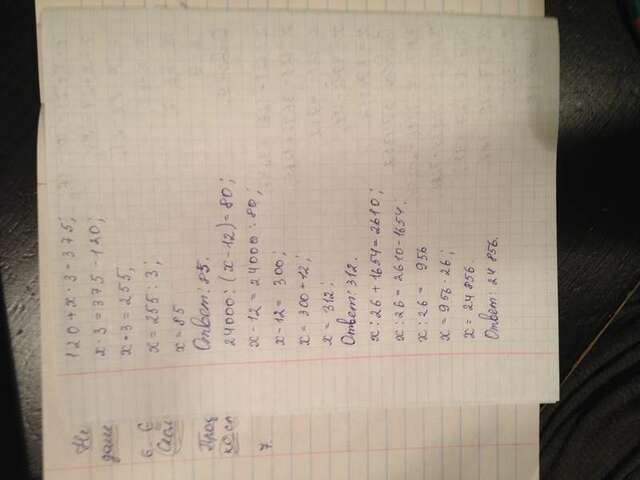 Не
дале
6. С
Скол
Прод
косл
7.
120 + x · 3 = 375;
x · 3 = 375 - 120;
x · 3 = 255,
x = 255 : 3;
x = 85
Ответ: 85.
24000 : (x - 12) = 80;
x - 12 = 24000 : 80;
x - 12 = 300;
x = 300 + 12;
x = 312;
Ответ: 312.
x : 26 + 1654 = 2610;
x : 26 = 2610 - 1654;
x : 26 = 956
x = 956 · 26;
x = 24856
Ответ: 24 856.